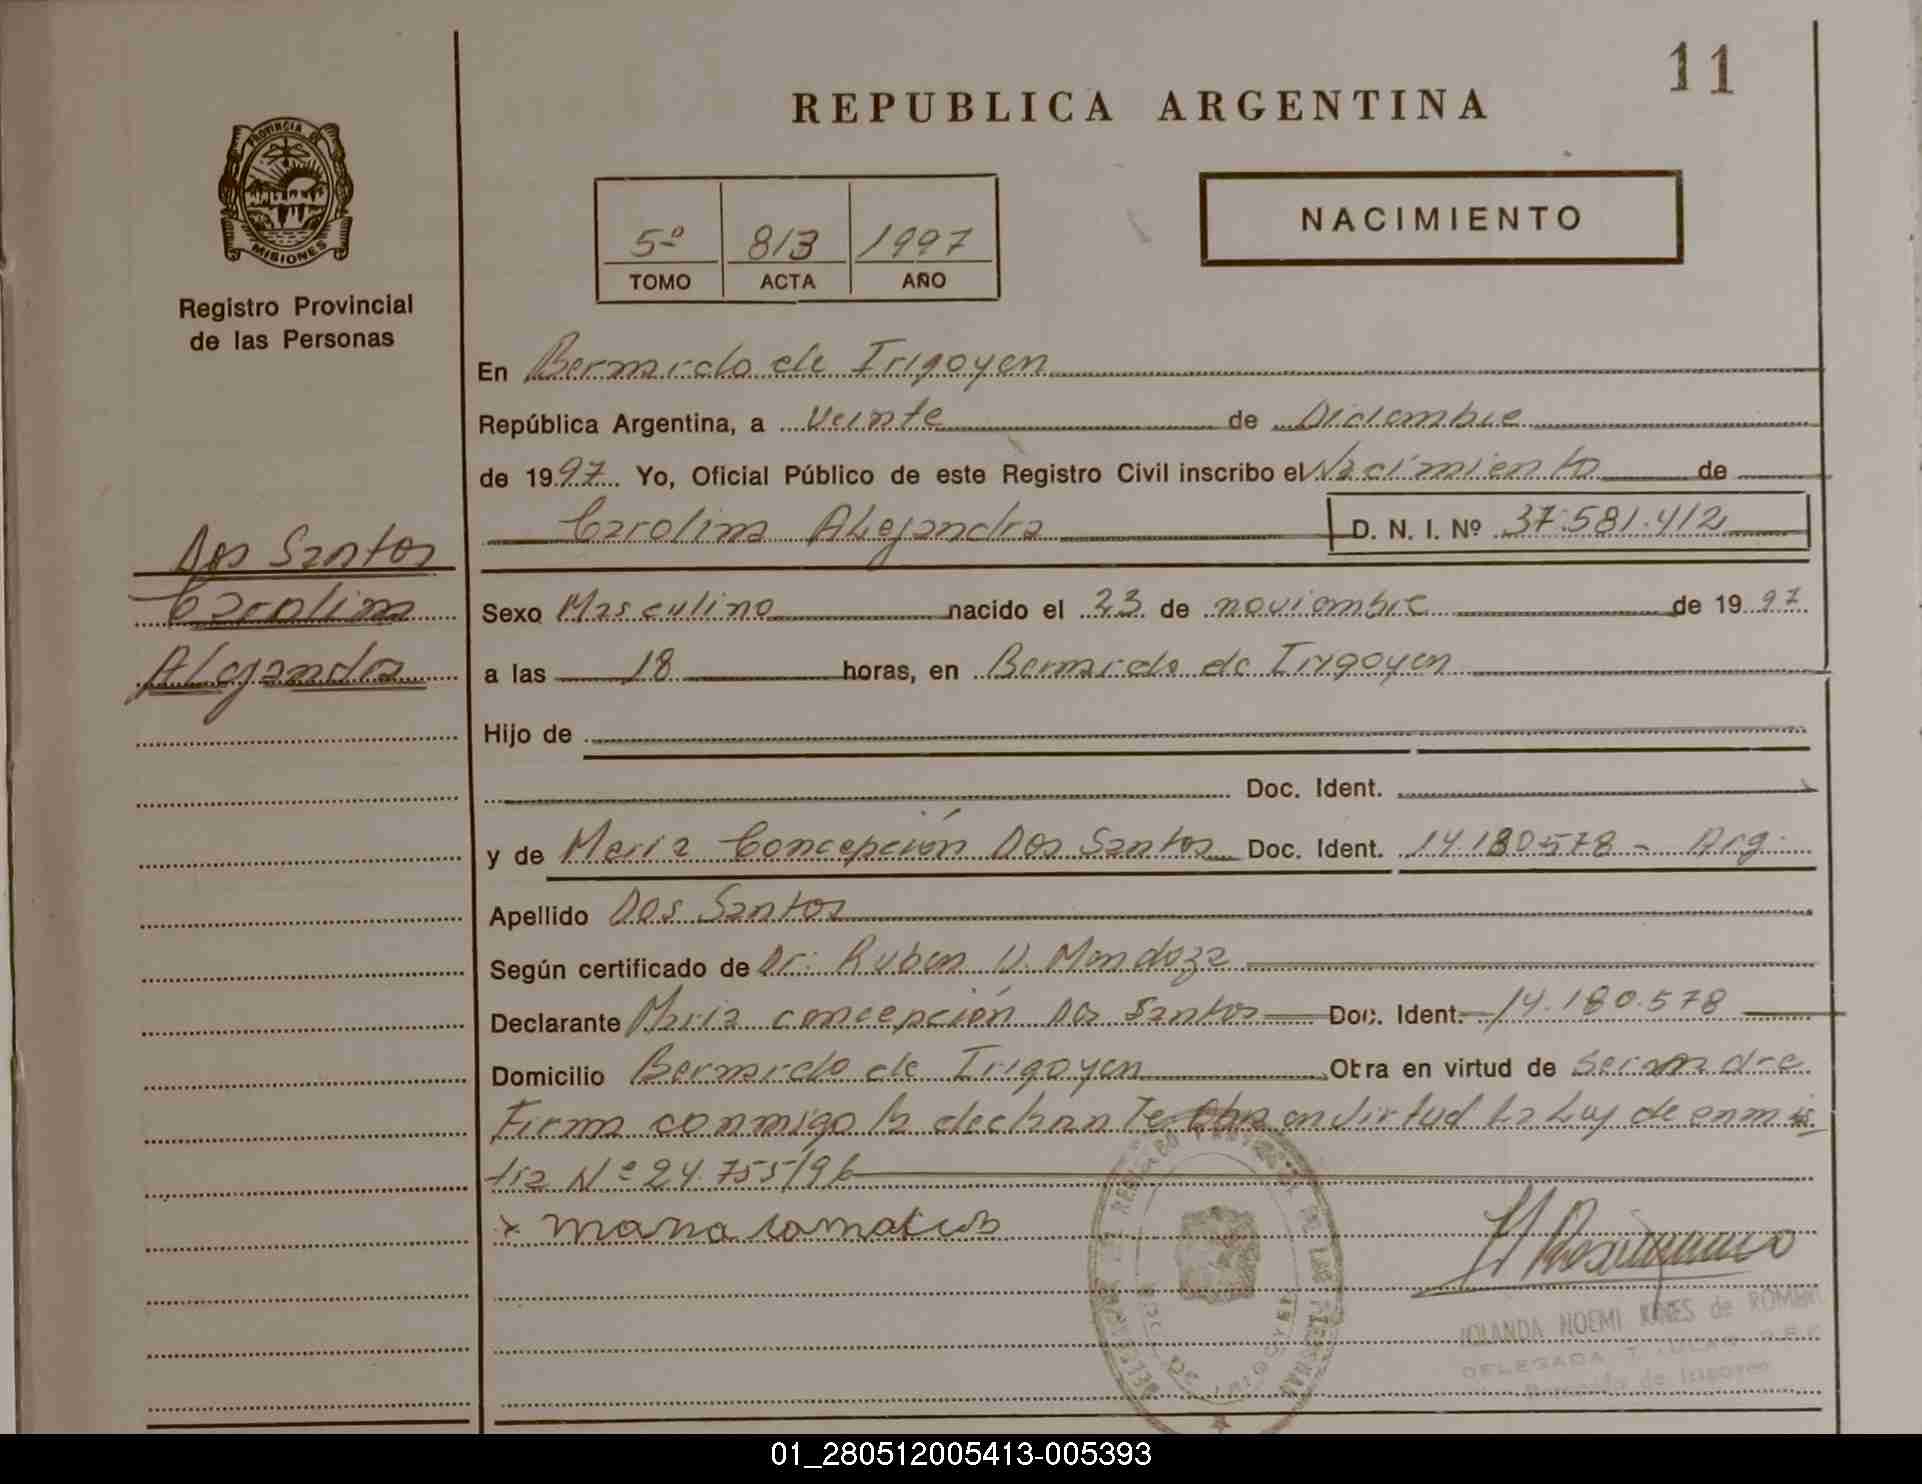 11
REPUBLICA ARGENTINA
PROVINCIA
MISIONES
Registro Provincial
de las Personas
NACIMIENTO
5º 813 1997
TOMO ACTA AÑO
En Bernardo de Irigoyen
República Argentina, a Veinte de Diciembre
de 1997. Yo, Oficial Público de este Registro Civil inscribo el Nacimiento de
Carolina Alejandra D. N. I. Nº 37.581.412
Dos Santos
Carolina
Alejandra
Sexo Masculino nacido el 23 de noviembre de 1997
a las 18 horas, en Bernardo de Irigoyen
Hijo de
Doc. Ident.
y de Maria Concepción Dos Santos Doc. Ident. 14.180578 - Arg.
Apellido Dos Santos
Según certificado de Dr: Ruben V. Mendoza
Declarante Maria concepción Dos Santos Doc. Ident. 14.180.578
Domicilio Bernardo de Irigoyen Obra en virtud de
Firma conmigo la en virtud La Ley de
tia Nº 24.755/96
x maria
NOEMI de
DELEGADA
Bernardo de Irigoyen
01_280512005413-005393